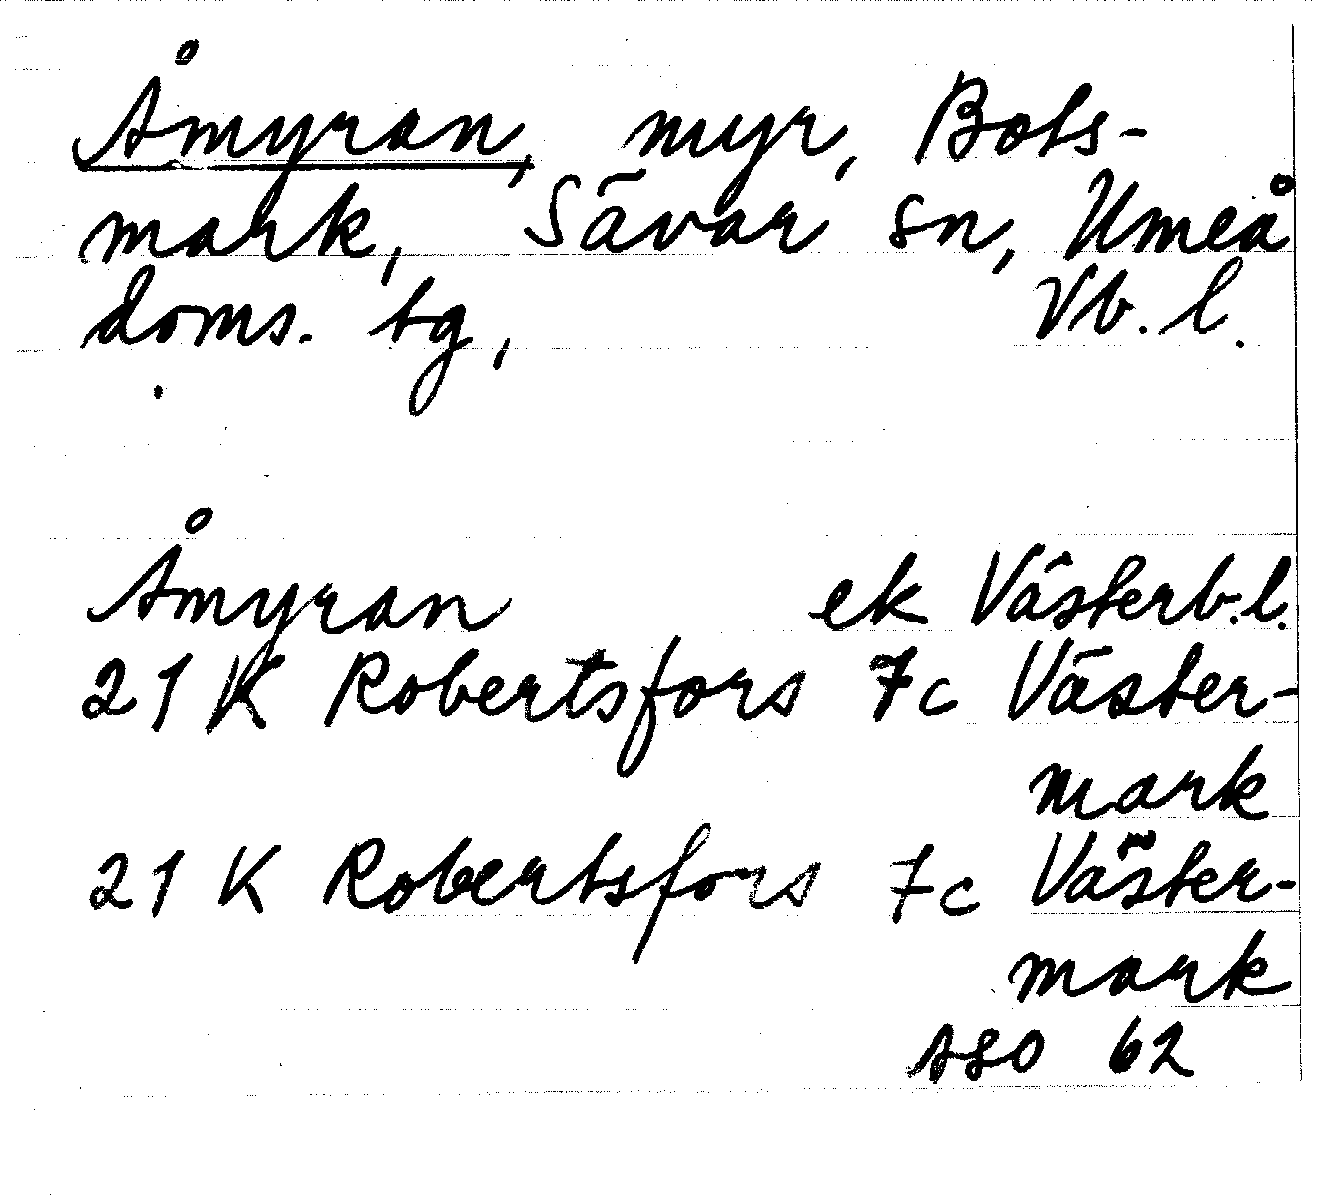 Åmyran, myr, Bots-
mark, Sävar sn, Umeå
doms. tg, Vb. l.
Åmyran ek Västerb.l.
21 K Robertsfors 7c Väster-
mark
21 K Robertsfors 7c Väster-
mark
ASO 62